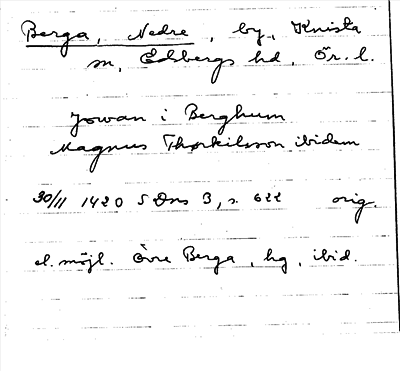 Berga, Nedre, by, Knista
sn, Edsbergs hd, Ör. l.
Jowan i Berghum
Magnus Thorkilsson ibidem
30/11 1420 SDns 3, s. 622 orig.
el. möjl. Övre Berga, hg, ibid.